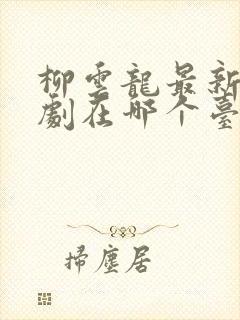 柳雲龍最新
劇在哪个臺
掃塵居